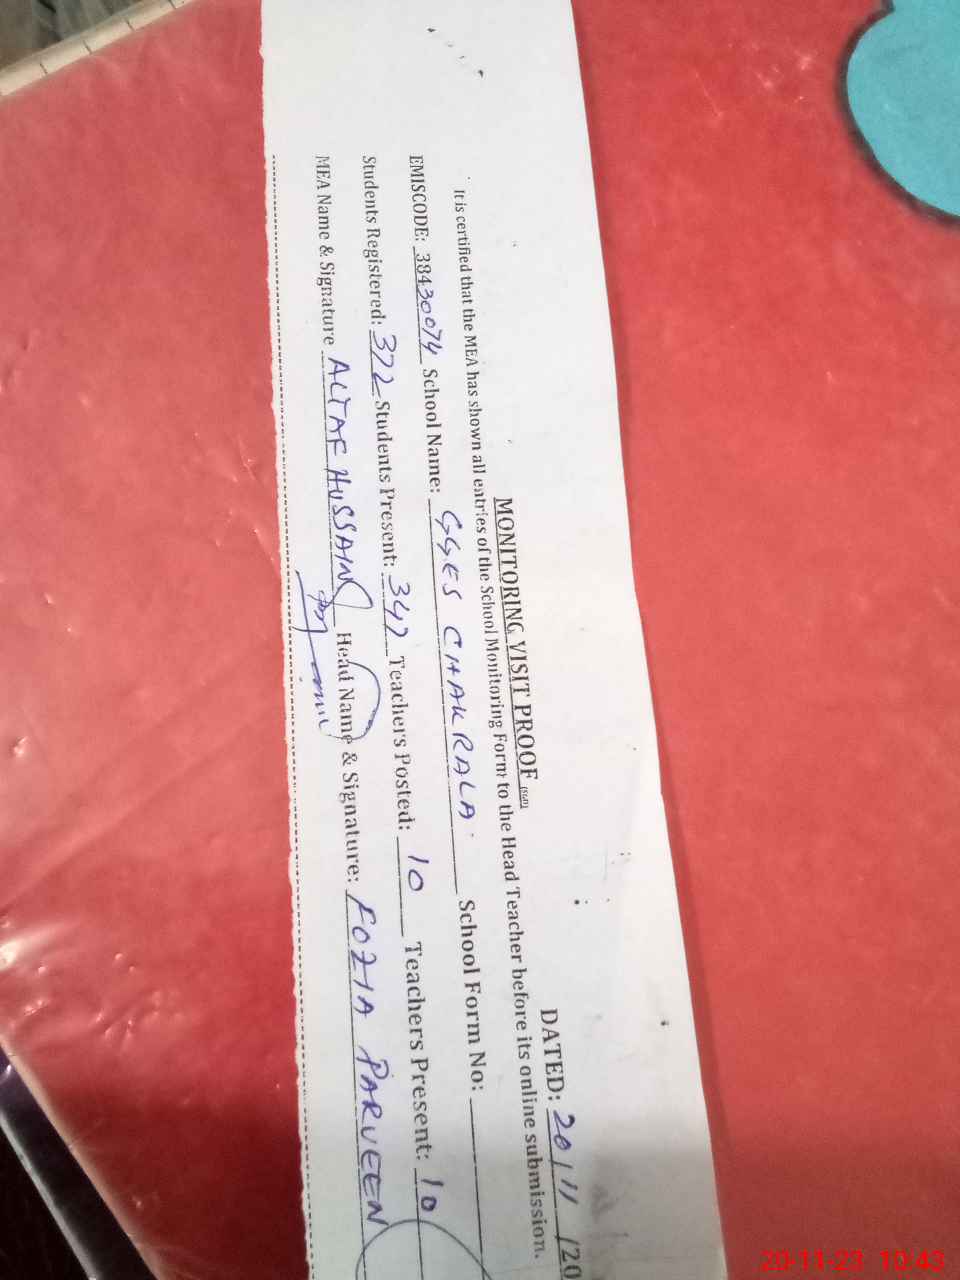 MONITORING VISIT PROOF
DATED: 20/11/20
It is certified that the MEA has shown all entries of the School Monitoring Form to the Head Teacher before its online submission.
EMISCODE: 38430074 School Name: GGES CHAKRALA School Form No:
Students Registered: 372 Students Present: 347 Teachers Posted: 10 Teachers Present: 10
MEA Name & Signature ALTAF HUSSAIN Head Name & Signature: FOZIA PARVEEN
20-11-23 10:43